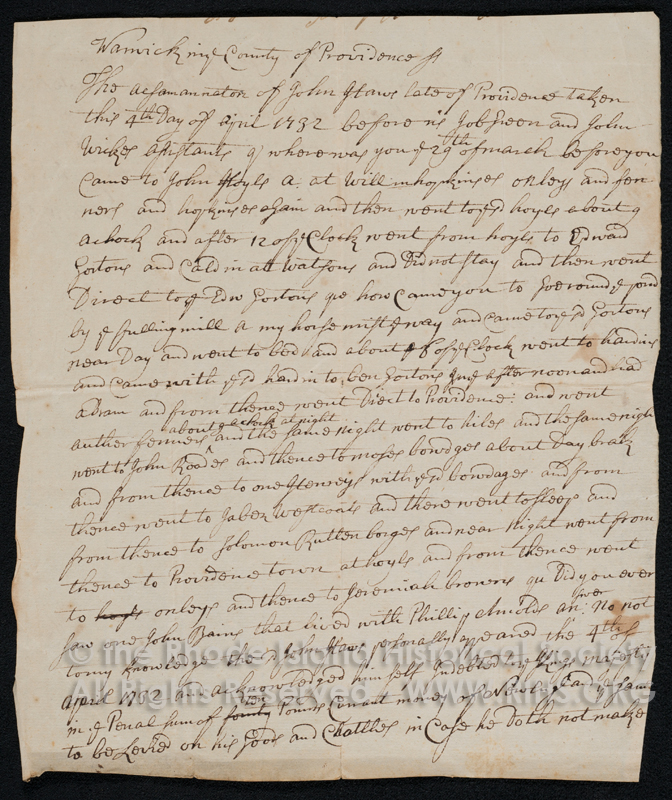 Warwick in ye County of Providence ss
The Examination of John Haws late of Providence taken
this 4th Day of april 1732 before us Job Green and John
Wickes assistants q where was you ye 29th of march before you
Came to John Hoyls a: at Will: mhopkinses onleys and fen-
ners and hopkinses again and then went to ye sd hoyls about 9
a clock and after 12 of ye Clock went from hoyls to Edward
Gortons and Cald in att Watsons and Did not stay and then went
Direct to ye Edw Gortons qe how Came you to Goe round ye pond
by ye fulling mill a my horse mist ye way and came to ye sd Gortons
near Day and went to bed and about 8 of ye Clock went to hardins
and came with ye sd hardin to ben Gortons in ye after noon and had
a Dram and from thence went Direct to Providence: and went
about 9 a clock at night
auther fenners and the same night went to hiles and the same night
went to John Roades and thence to moses bowdges about Day brake
and from thence to one Henreys with ye sd bowdages. and from
thence went to Jabez Wescoats and there went to sleep and
from thence to Solomon Rutten borges and near night went from
thence to Providence town at hoyls and from thence went
to hoyls onleys and thence to Jeremiah browns qu Did you ever
saw one John Bains that lived with Phillip Arnolds an:swer no not
to my knowledge the sd John Haws personally appeared the 4th of
April 1732 and acknowledged himself Indebted to ye Kings majesty
in ye Penal sum of Pounds Currant money of New England ye same
to be Levied on his Goods and Chattles in Case he doth not make
© the Rhode Island Historical Society
All Rights Reserved - WWW.RIHS.ORG